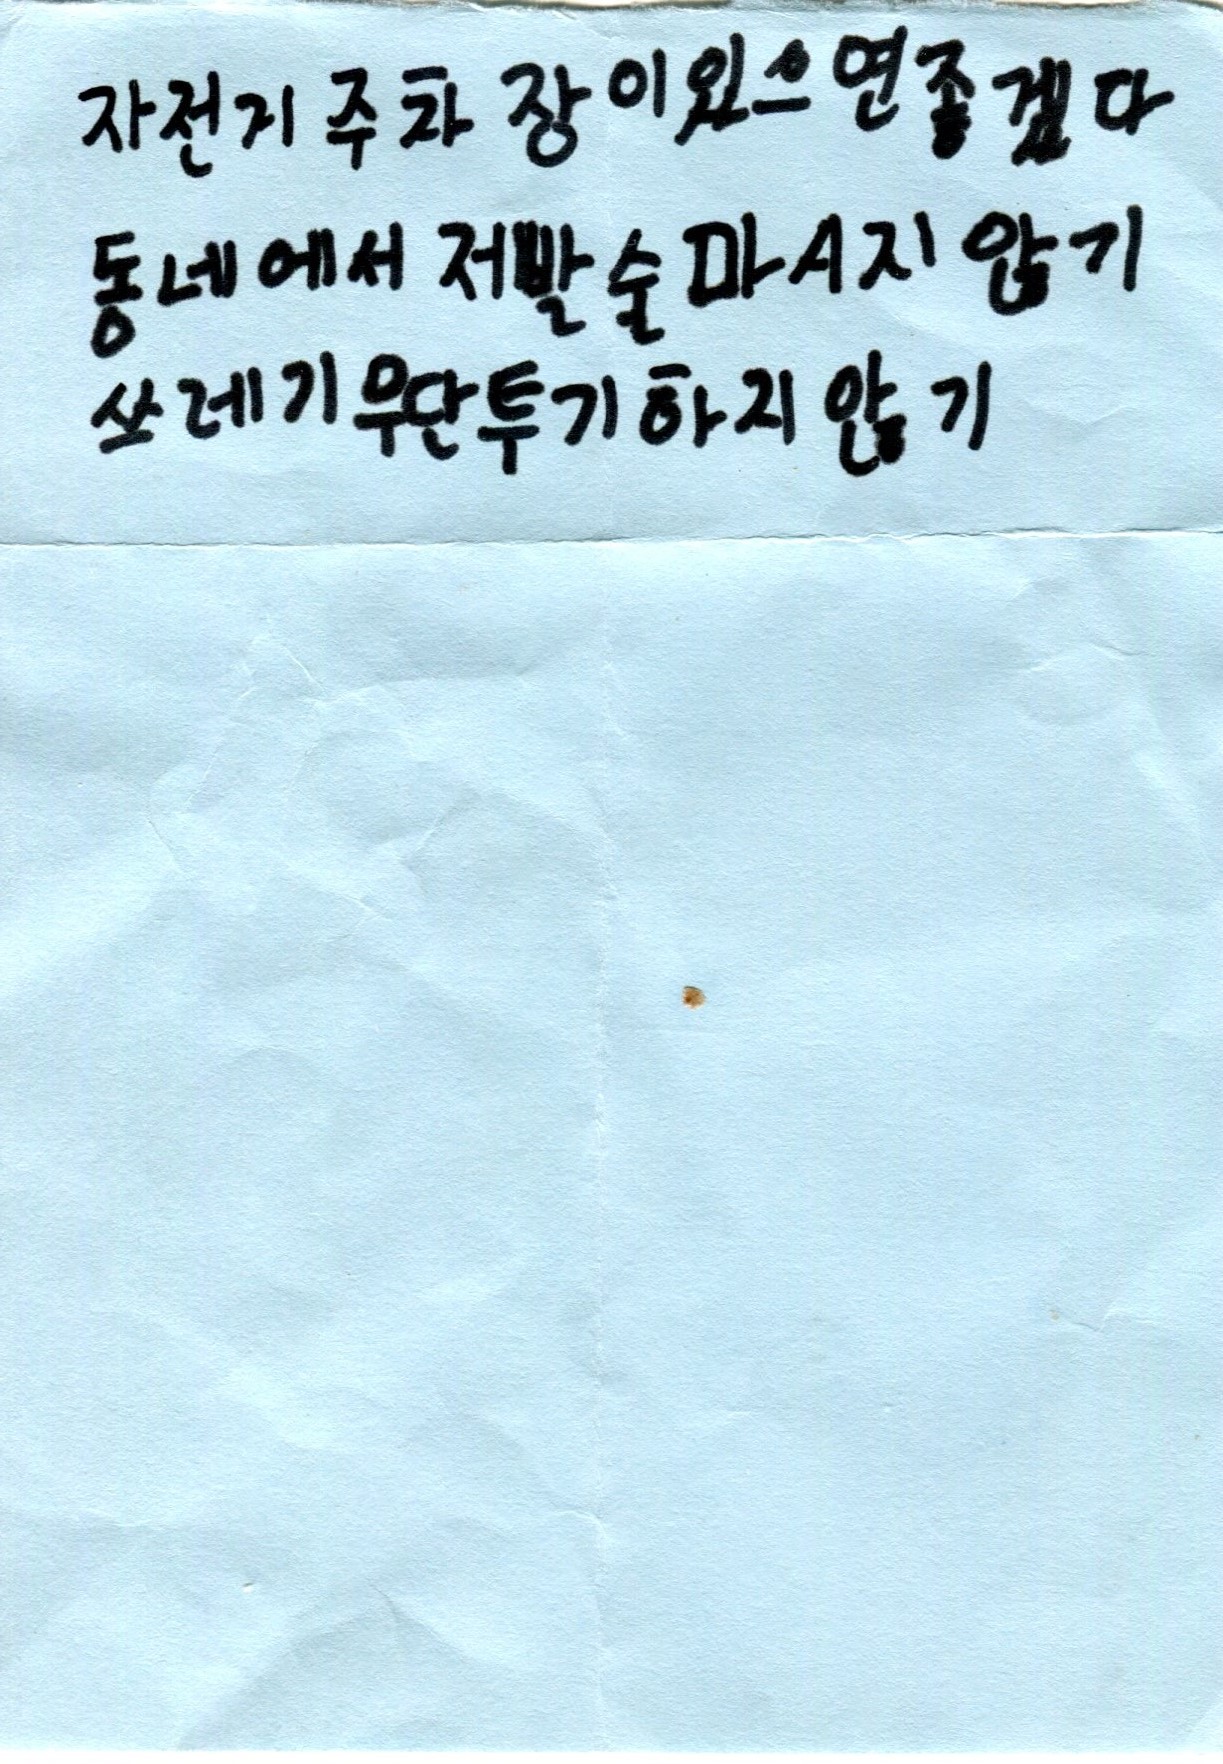 자전거 주차 장 이 있으면 좋겠다
동네에서 제발 술 마시지 않기
쓰레기 무단투기 하지 않기